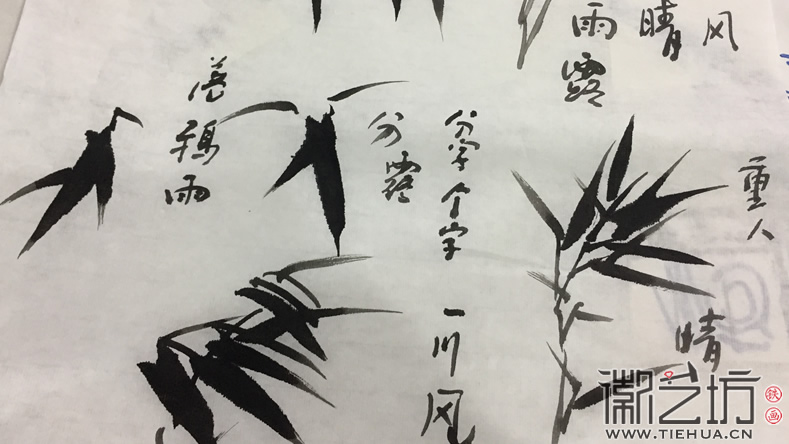 风
晴
雨露
重人
分字个字
分露
雨
晴
一川风
徽艺坊
铁画
WWW.TIEHUA.CN